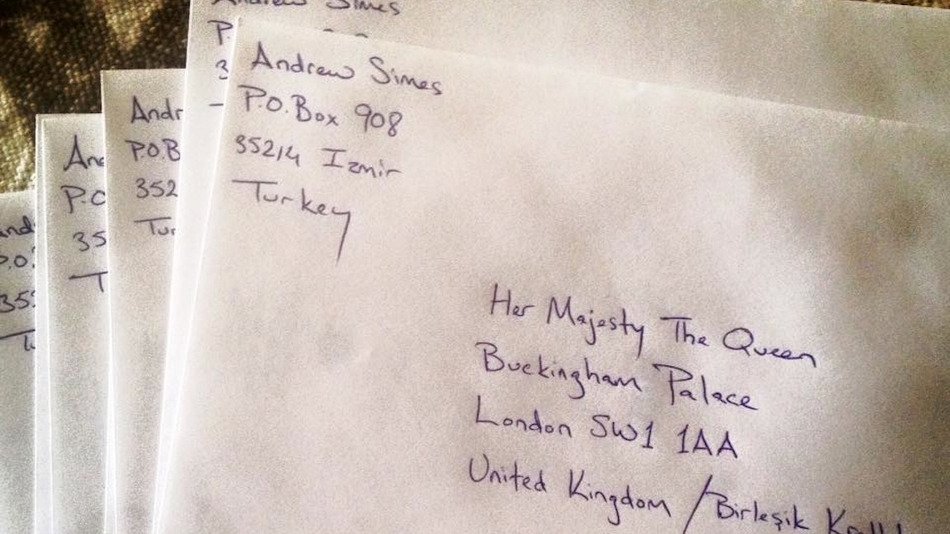 Andrew Simes
Andrew Simes
P.O.Box 908
35214 Izmir
Turkey
Her Majesty The Queen
Buckingham Palace
London SW1 1AA
United Kingdom / Birleşik
Andr
P.O.B
352
Tur
An
P.O
35
T
and
P.O.
35
T